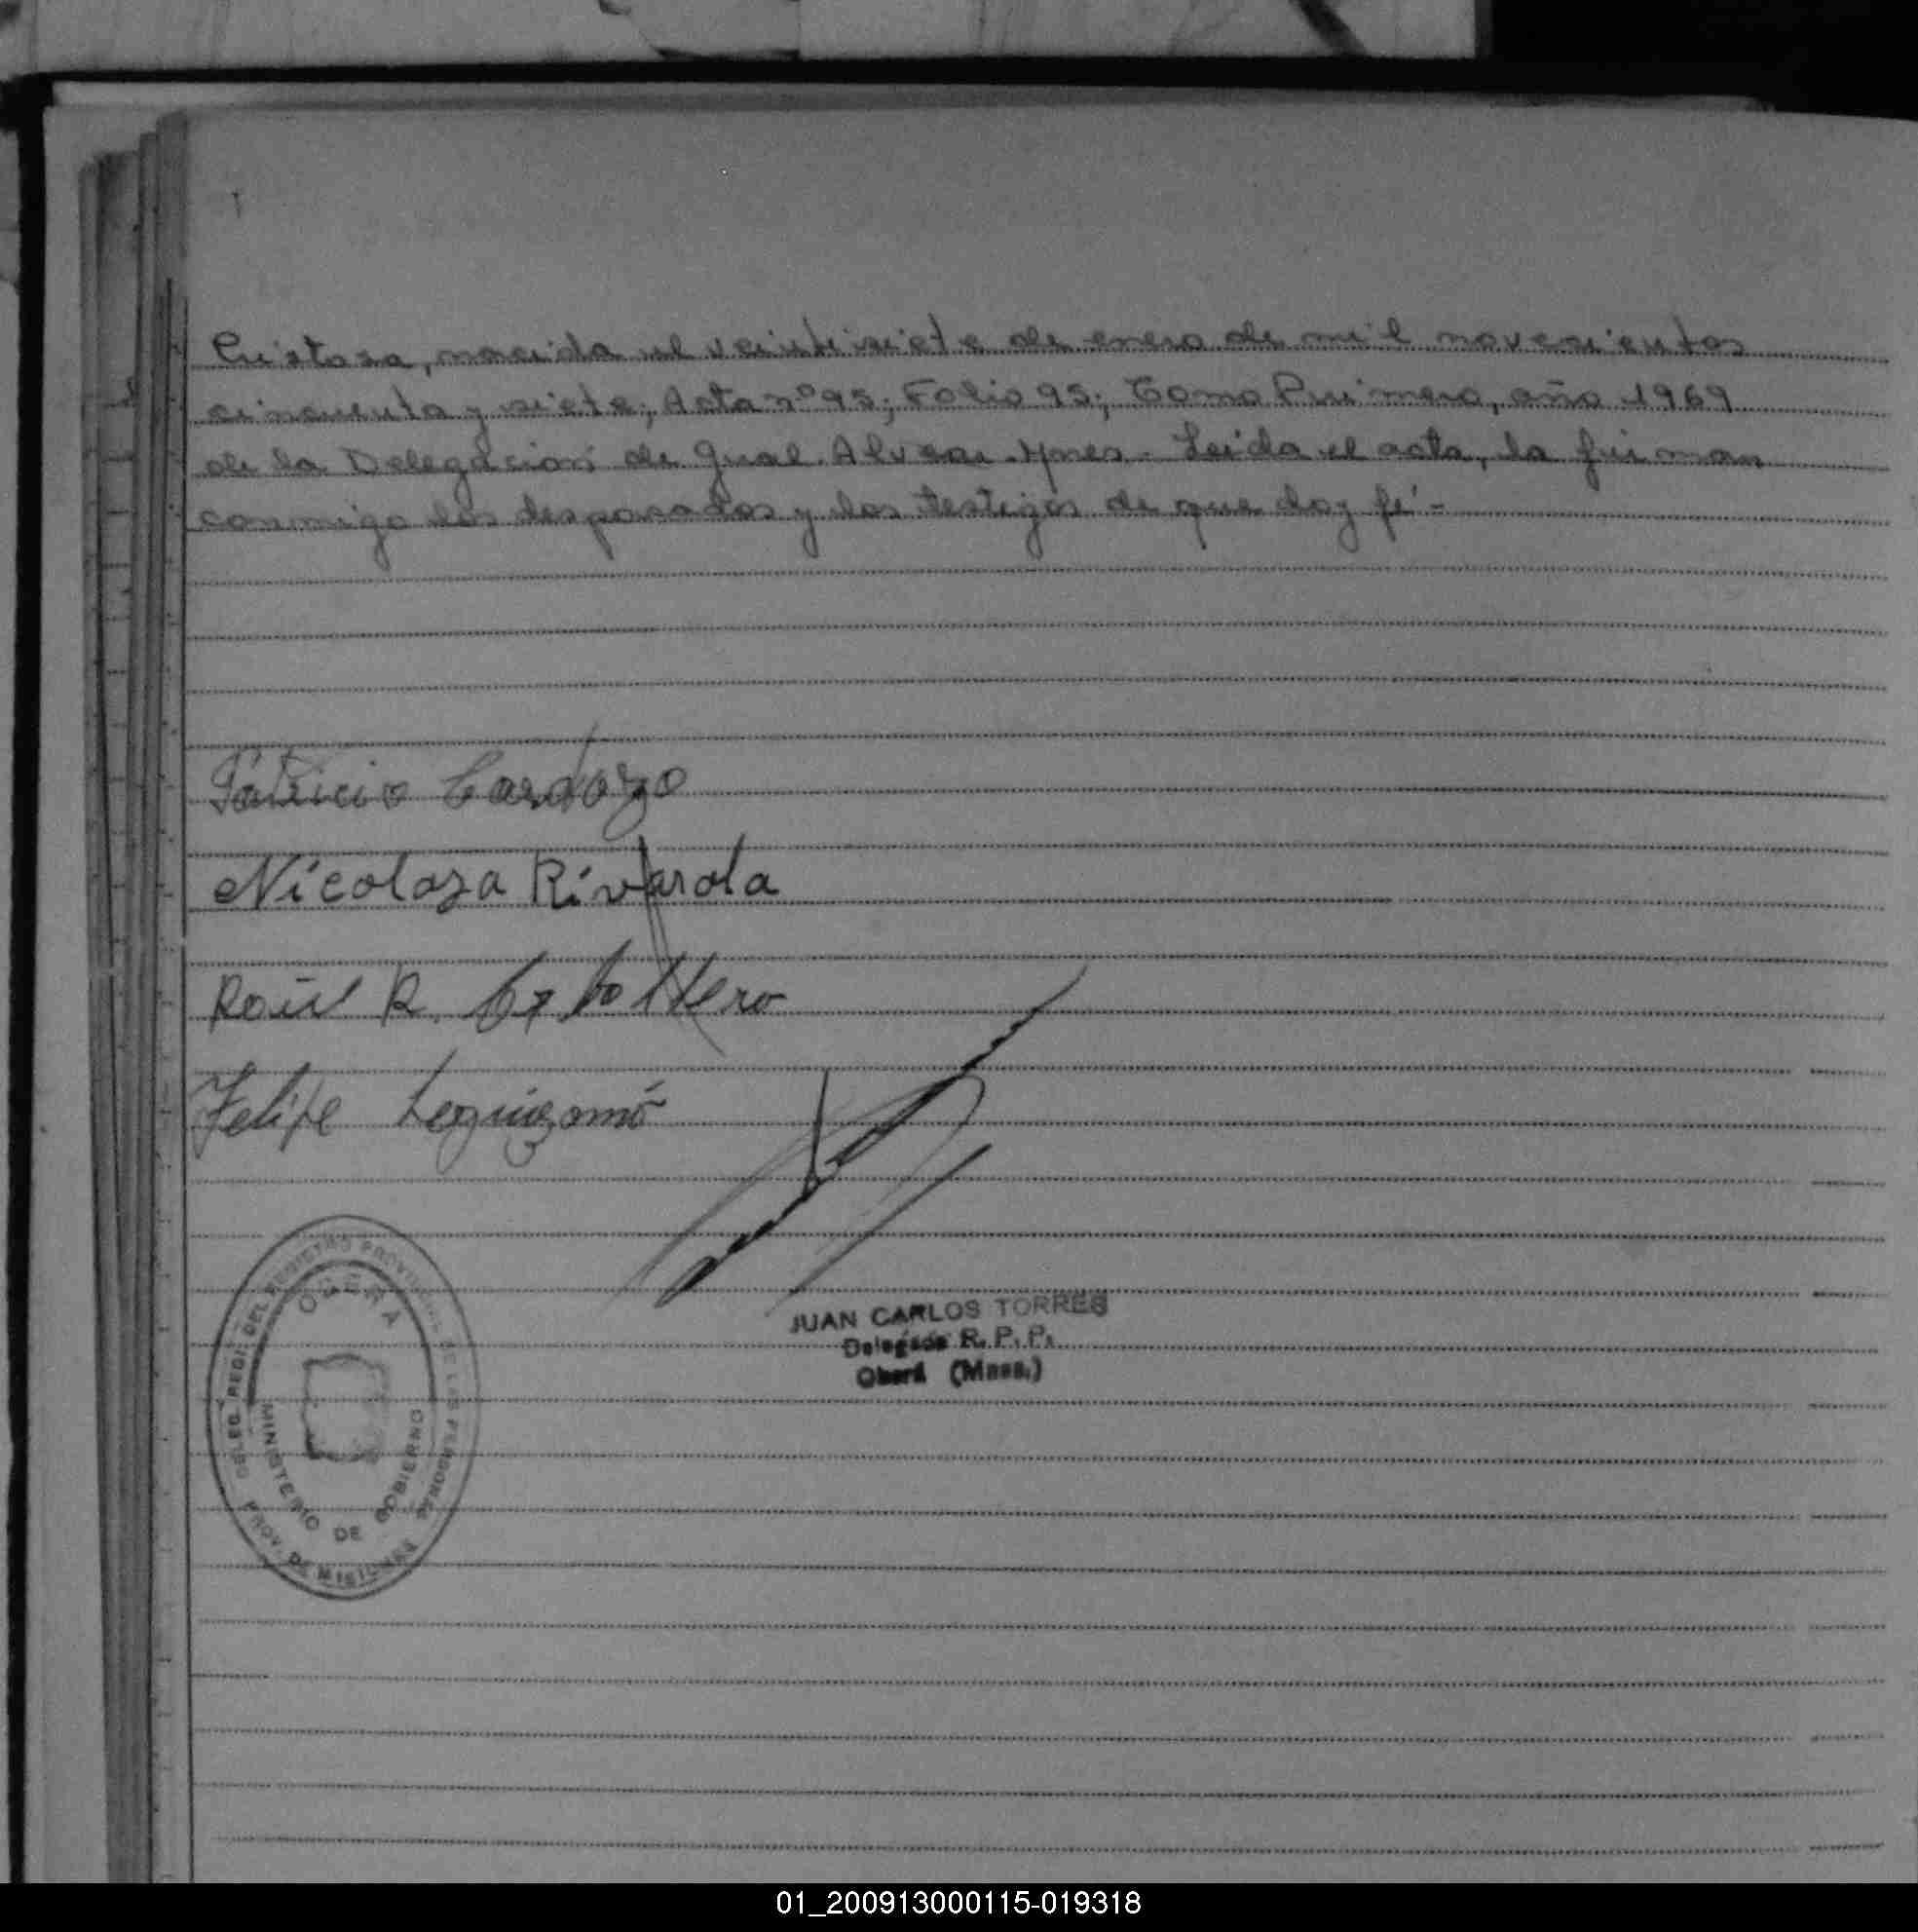 Cristosa, nacida el veintisiete de enero de mil novecientos
cincuenta y siete; Acta nº 95; Folio 95; Tomo Primero, año 1969
de la Delegación de Gral. Alvear. Mnes. Leida el acta, la firman
conmigo los desposados y los testigos de que doy fé.-
Patricio Cardozo
Nicolasa Rivarola
Raúl R.
Felipe Leguizamó
JUAN CARLOS TORRES
Delegado R. P. P.
Oberá (Mnes.)
DELEG. REGI. DEL REGISTRO PROVINCIAL DE LAS PERSONAS
OBERA
MINISTERIO DE GOBIERNO
PROV. DE MISIONES
01_200913000115-019318